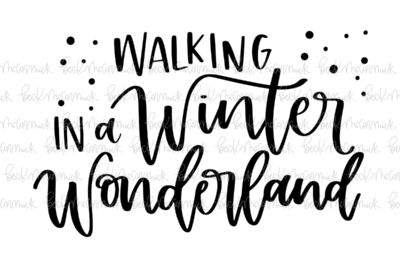 WALKING
IN a Winter
Wonderland